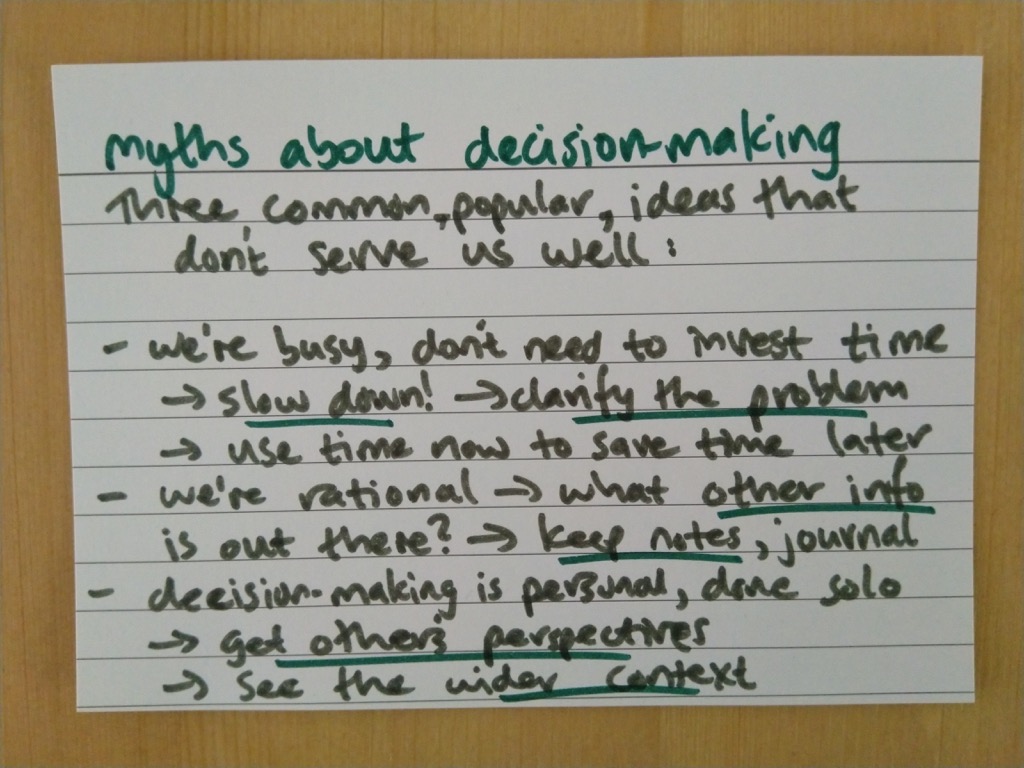 myths about decision-making
Three common, popular, ideas that
don't serve us well:
- we're busy, don't need to invest time
→ slow down! → clarify the problem
→ use time now to save time later
- we're rational → what other info
is out there? → keep notes, journal
- decision-making is personal, done solo
→ get other's perspectives
→ see the wider context